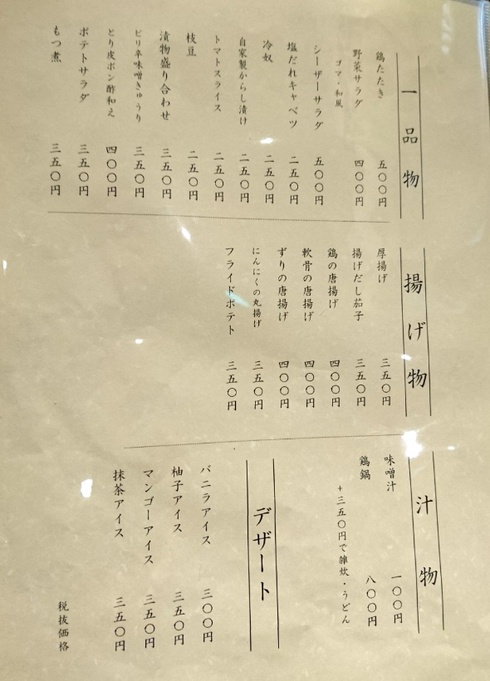 一品物
鶏たたき 五〇〇円
野菜サラダ 四〇〇円
ゴマ・和風
シーザーサラダ 五〇〇円
塩だれキャベツ 二五〇円
冷奴 二五〇円
自家製からし漬け 二五〇円
トマトスライス 二五〇円
枝豆 二五〇円
漬物盛り合わせ 三五〇円
ピリ辛味噌きゅうり 三五〇円
とり皮ポン酢和え 四〇〇円
ポテトサラダ 三五〇円
もつ煮 三五〇円
揚げ物
厚揚げ 三五〇円
揚げだし茄子 三五〇円
鶏の唐揚げ 四〇〇円
軟骨の唐揚げ 四〇〇円
ずりの唐揚げ 四〇〇円
にんにくの丸揚げ 三五〇円
フライドポテト 三五〇円
汁物
味噌汁 一〇〇円
鶏鍋 八〇〇円
+三五〇円で雑炊・うどん
デザート
バニラアイス 三〇〇円
柚子アイス 三五〇円
マンゴーアイス 三五〇円
抹茶アイス 三五〇円
税抜価格